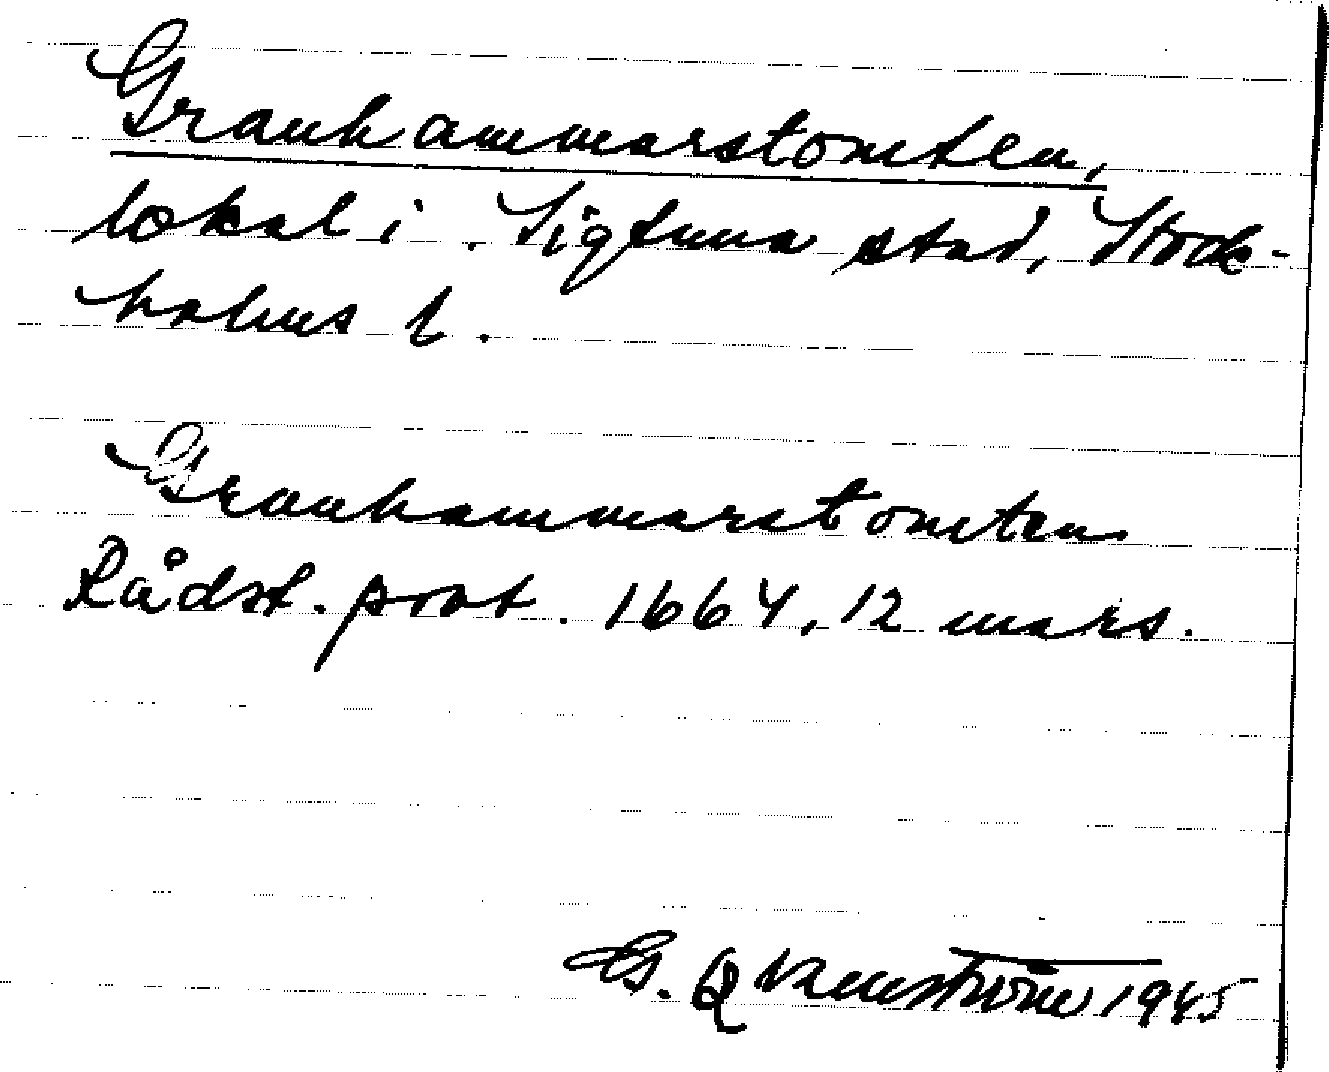 Granhammarstomten,
lokal i Sigtuna stad, Stock-
holms l.
Granhammarstomten
Rådst. prot. 1664, 12 mars.
G. Qvarnström 1945